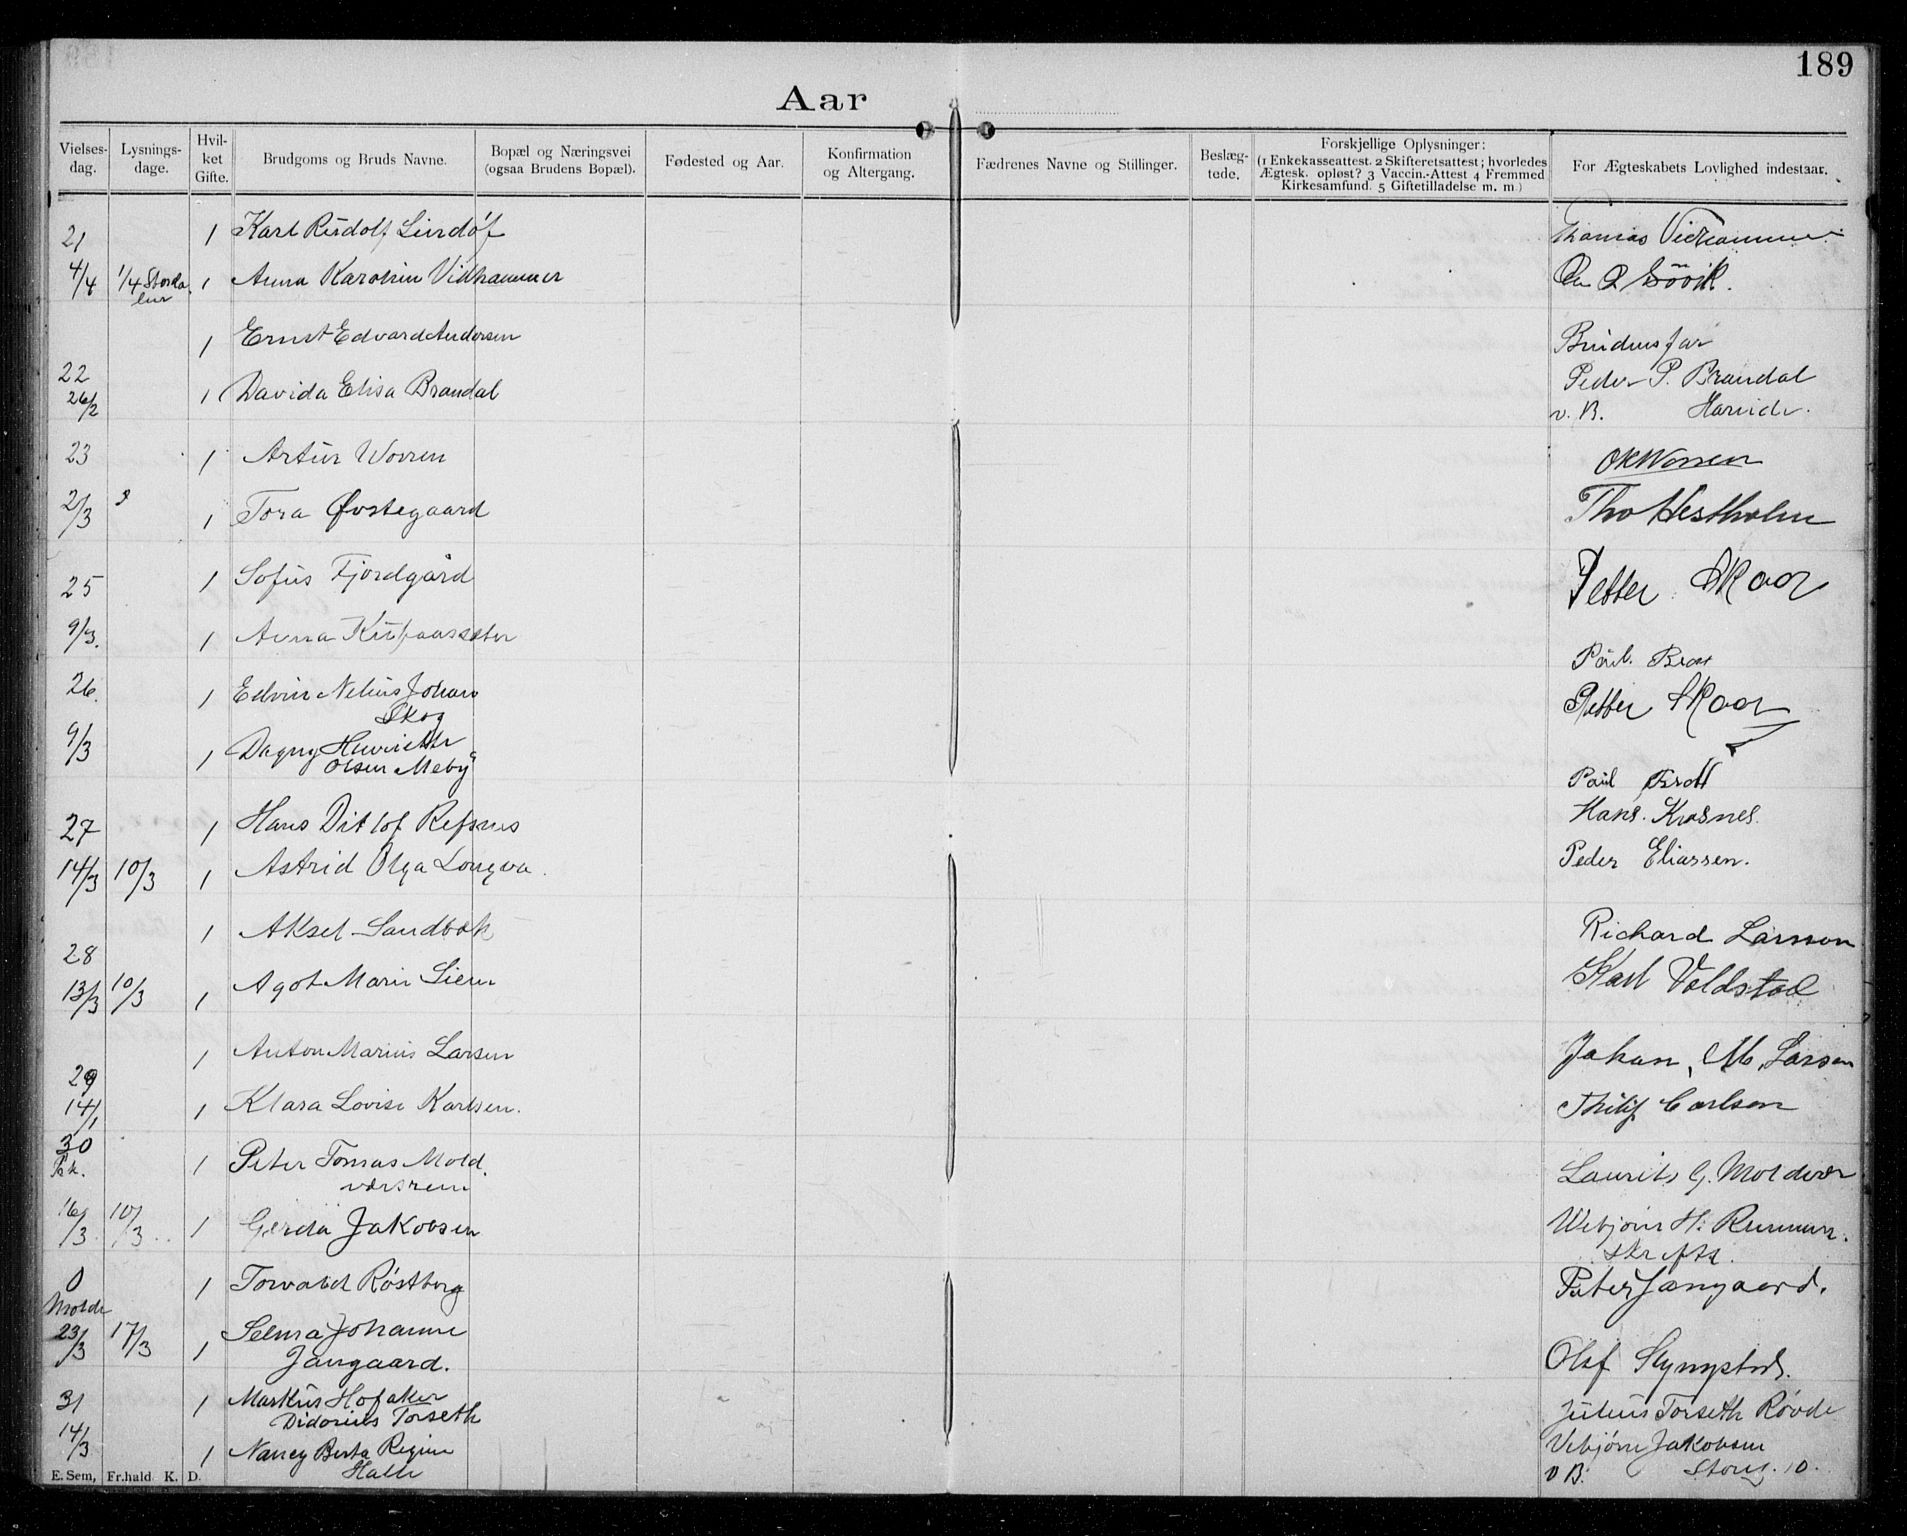 189
Aar
Vielses-dag.
Lysnings-dage.
Hvil-ket Gifte.
Brudgoms og Bruds Navne.
Bopæl og Næringsvei (ogsaa Brudens Bopæl).
Fødested og Aar.
Konfirmation og Altergang.
Fædrenes Navne og Stillinger.
Beslæg-tede.
Forskjellige Oplysninger: (1 Enkekasseattest. 2 Skifteretsattest; hvorledes Ægtesk. opløst? 3 Vaccin.-Attest 4 Fremmed Kirkesamfund. 5 Giftetilladelse m. m)
For Ægteskabets Lovlighed indestaar.
21 1 Karl Rudolf Thomas
4/4 1/4 1 Anna Karolin Vidhammer
1 Ernst Edvard Andersen Brudens far
22 Peder P. Brandal
26/2 1 Davida Elisa Brandal v. B.
23 1 Artur Worren OKWorren
2/3 1 Tora Øvstegaard Tho Hestholm
25 1 Sofus Fjordgård Petter Skoor
9/3. 1 Anna
26. 1 Edvin Nelius Johan Petter Skoor
Skog
9/3 1 Dagny Henriette
Olsen Meby
27 1 Hans Ditlof Refsnes Hans
14/3 10/3 1 Astrid Olga Longva Peder Eliassen.
28 1 Aksel Sandbak Richard Larsson
13/3 10/3 1 Agot Marie Liem Karl Voldstad
29 1 Anton Marius Larsen Johan, M. Larsen
14/1 1 Klara Lovise Karlsen. Philip Carlsen
30 1 Peter Tomas Mold. Laurits G. Moldvær
værsrem
16/3 10/3 1 Gerda Jakobsen
0 1 Torvald Røstberg Peter Jangaard.
Molde
23/3 17/3 1 Selma Johanne Olaf
Jangaard.
31 1 Markus Hofaker Julius Torseth Røvde
Didorius Torseth
14/3 1 Nancy Berta Regine Vebjørn Jakobsen
Halle v B. Storg. 10.
E. Sem, Fr.hald K. D.